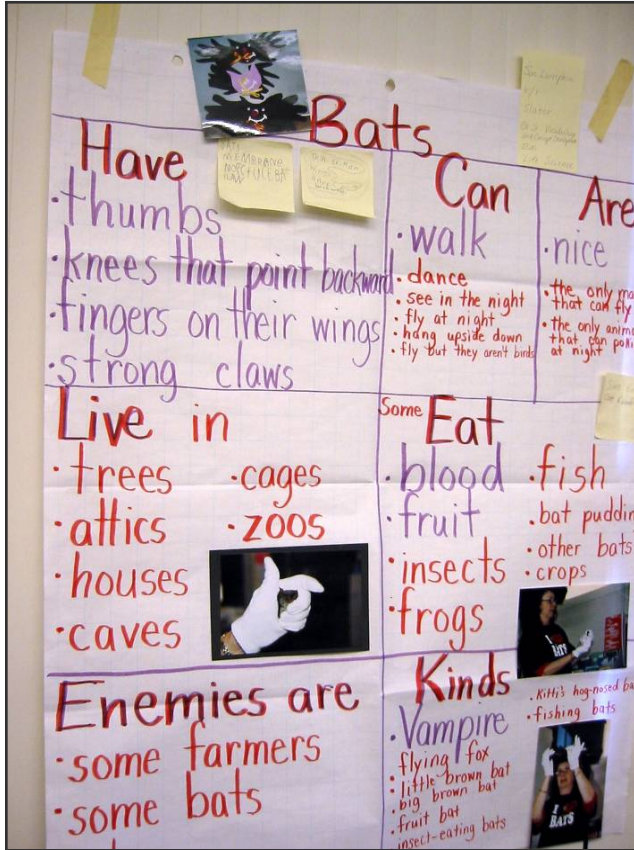 Bats
Have
BATS
MEMBRANE
·thumbs
·knees that point backward
·fingers on their wings
·strong claws
Can
·walk
·dance
·see in the night
·fly at night
·hang upside down
·fly but they aren't birds
Are
·nice
·the only ma
that can fly
·the only anima
that can polli
at night
Live in
·trees
·attics
·houses
·caves
·cages
·zoos
Some Eat
·blood
·fruit
·insects
·frogs
·fish
·bat puddin
·other bats
·crops
Enemies are
·some farmers
·some bats
Kinds
·Vampire
·flying fox
·little brown bat
·big brown bat
·fruit bat
·insect-eating bats
·Kitti's hog-nosed ba
·fishing bats
I
BATS
I
BATS